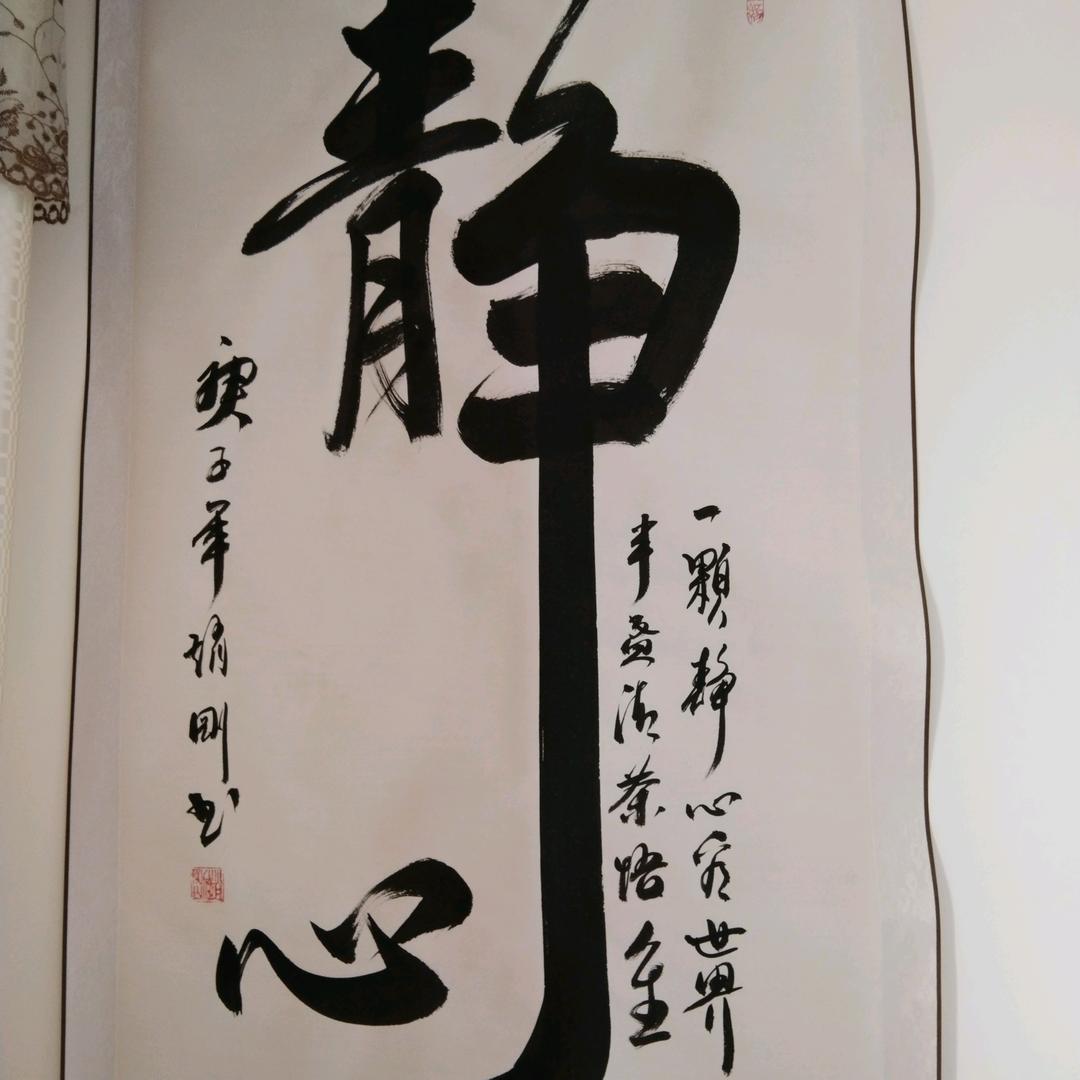 静心
一顆静心容世界
半盏清茶悟人生
庚子年靖剛书